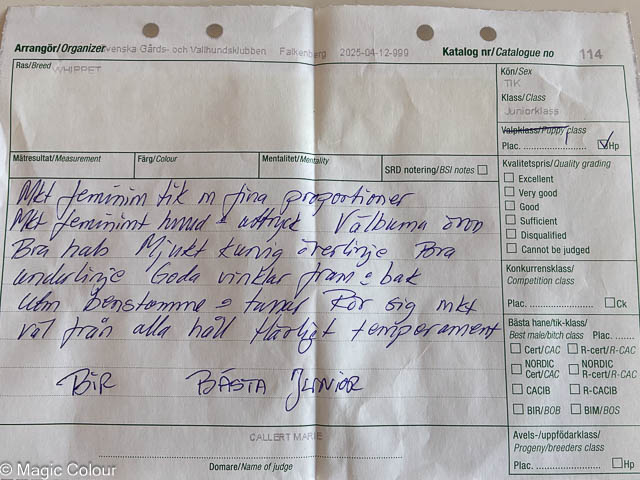 Arrangör/Organizer Svenska Gårds- och Vallhundsklubben Falkenberg 2025-04-12-999 Katalog nr/Catalogue no 114
Ras/Breed WHIPPET
Kön/Sex
TIK
Klass/Class
Juniorklass
Valpklass/Puppy class
Plac. Hp
Mätresultat/Measurement Färg/Colour Mentalitet/Mentality SRD notering/BSI notes
Kvalitetspris/Quality grading
Excellent
Very good
Good
Sufficient
Disqualified
Cannot be judged
Mkt feminim tik m fina proportioner
Mkt feminimt huvud o uttryck Välburna öron
Bra hals Mjukt kurvig överlinje Bra
underlinje Goda vinklar fram o bak
Utm benstomme o tassar Rör sig mkt
väl från alla håll Härligt temperament
BIR BÄSTA JUNIOR
Konkurrensklass/
Competition class
Plac. Ck
Bästa hane/tik-klass/
Best male/bitch class Plac.
Cert/CAC R-cert/R-CAC
NORDIC Cert/CAC NORDIC R-cert/R-CAC
CACIB R-CACIB
BIR/BOB BIM/BOS
CALLERT MARIE
Domare/Name of judge
Avels-/uppfödarklass/
Progeny/breeders class
Plac. Hp
© Magic Colour